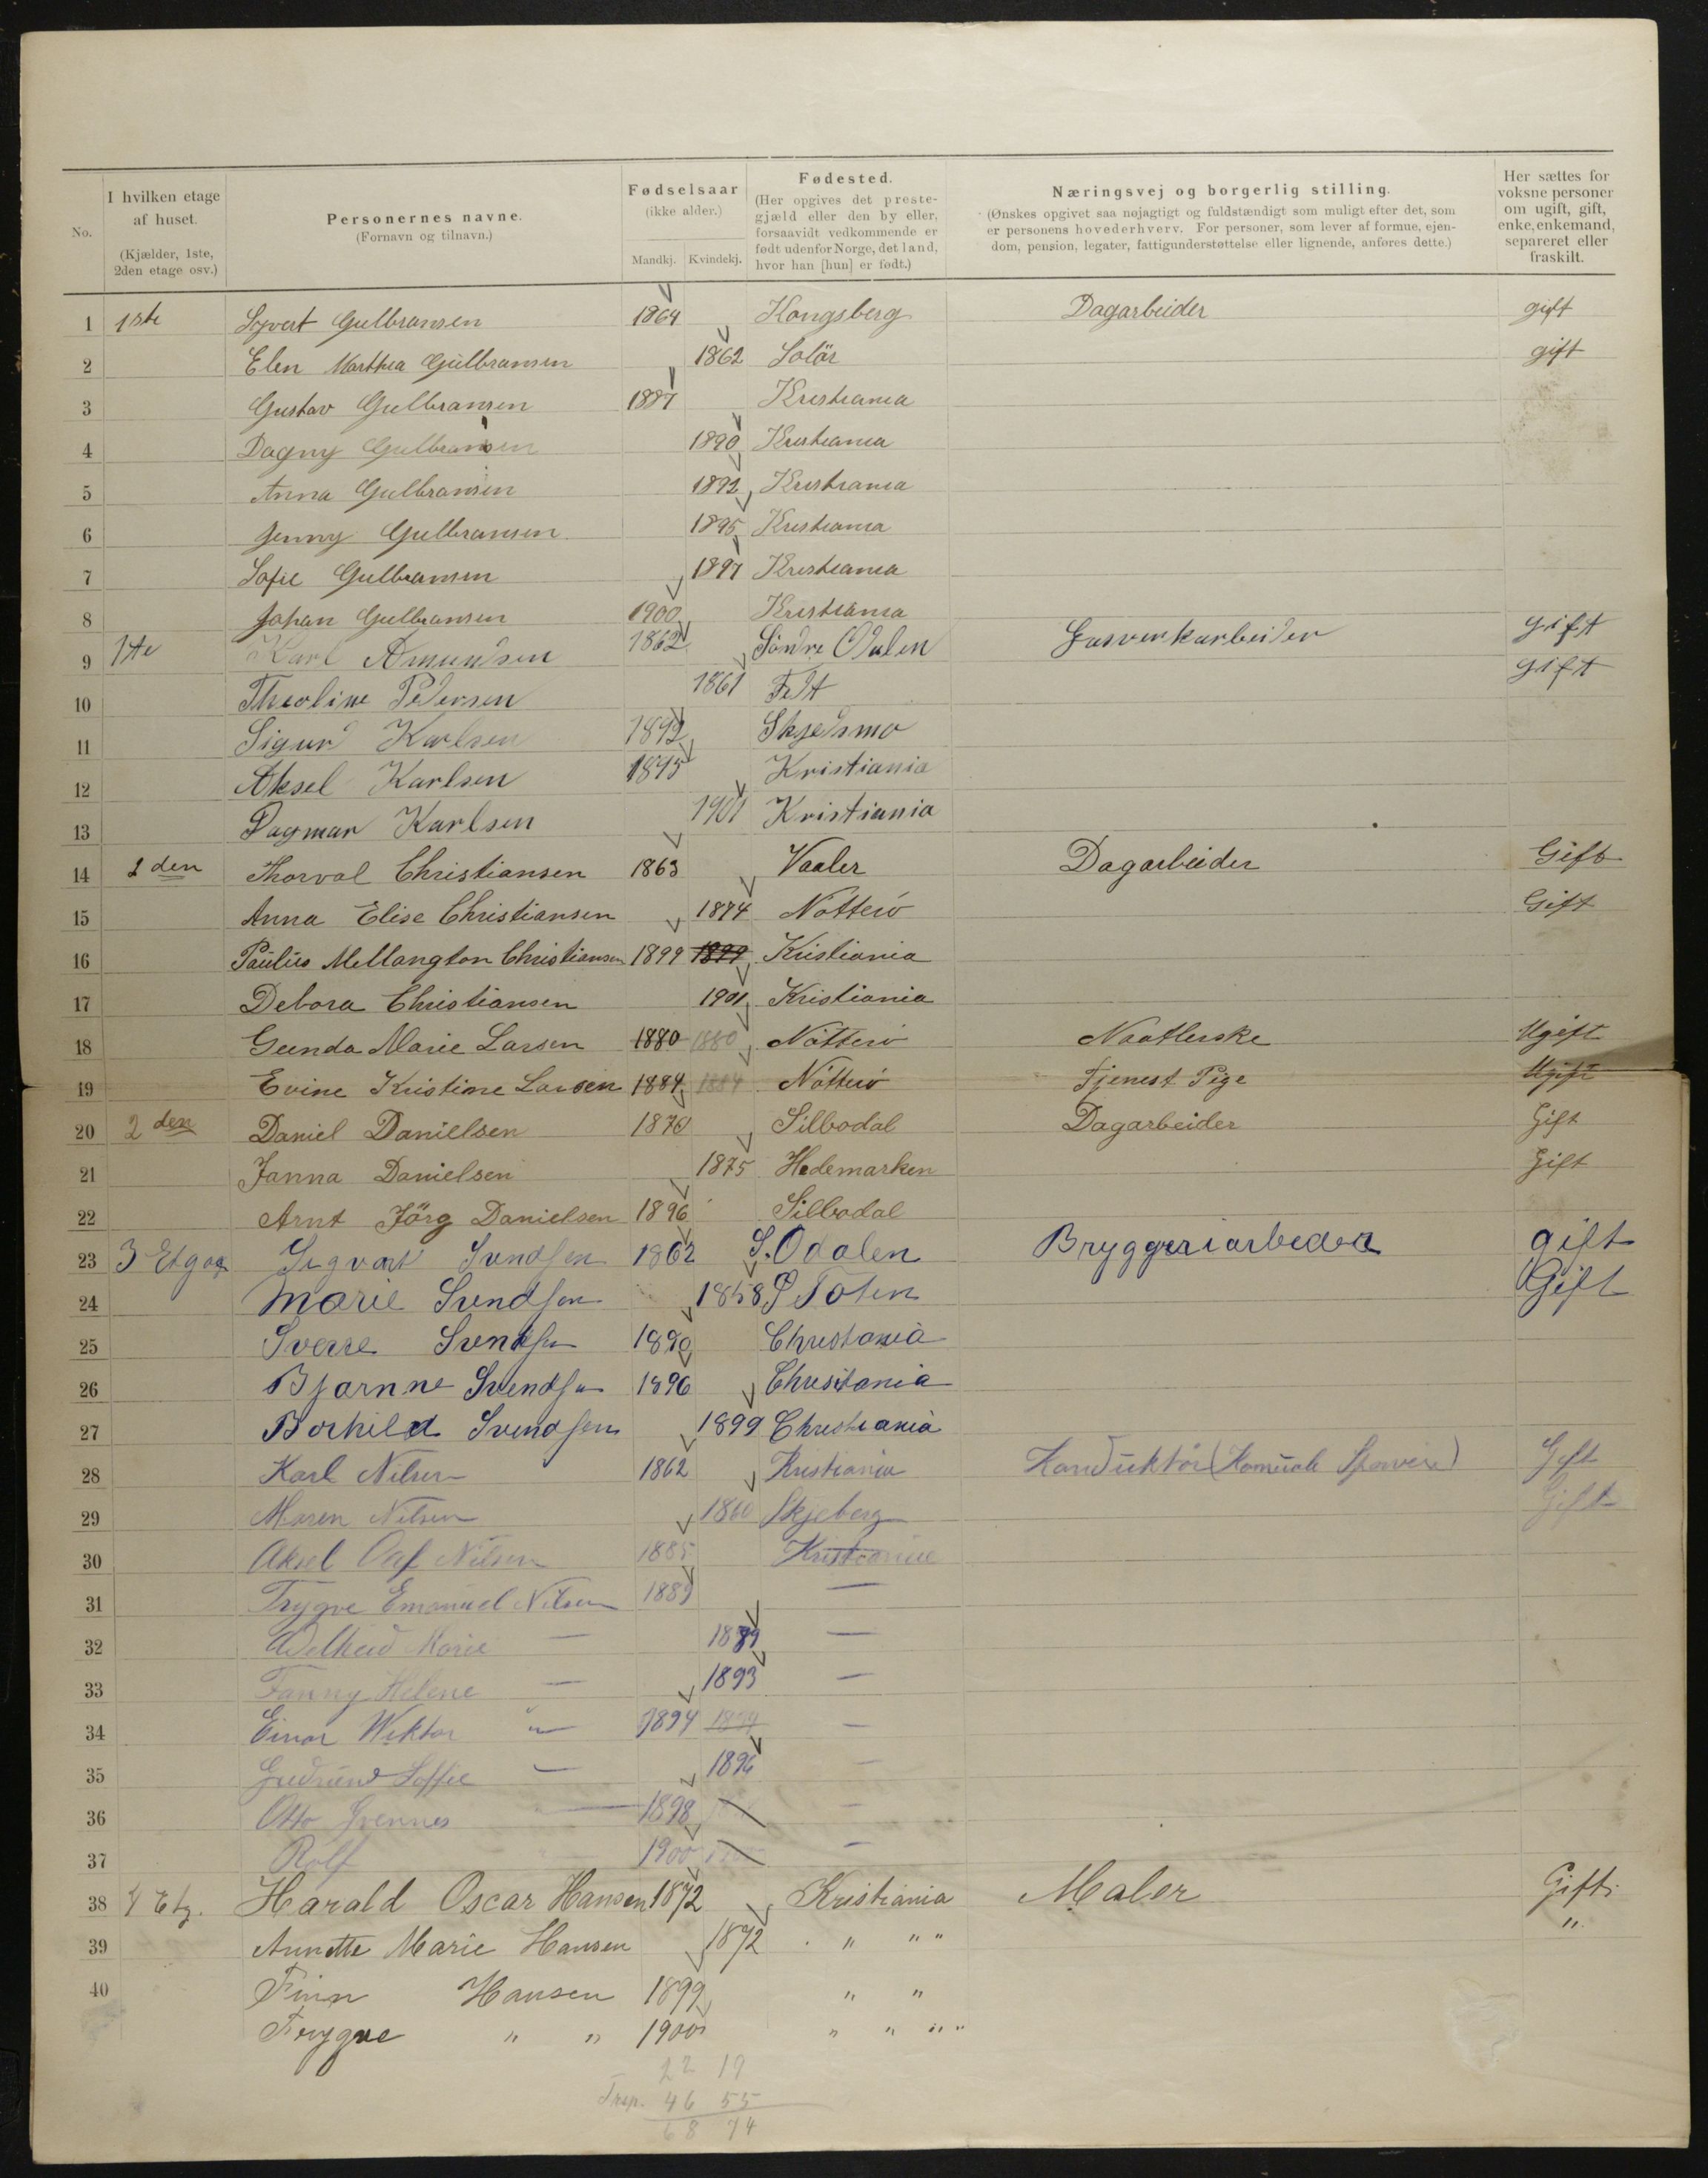 No. I hvilken etage af huset. (Kjælder, 1ste, 2den etage osv.) Personernes navne. (Fornavn og tilnavn.) Fødselsaar (ikke alder.) Mandkj. Kvindekj. Fødested. (Her opgives det prestegjæld eller den by eller, forsaavidt vedkommende er født udenfor Norge, det land, hvor han [hun] er født.) Næringsvej og borgerlig stilling. (Ønskes opgivet saa nøjagtigt og fuldstændigt som muligt efter det, som er personens hovederhverv. For personer, som lever af formue, ejendom, pension, legater, fattigunderstøttelse eller lignende, anføres dette.) Her sættes for voksne personer om ugift, gift, enke, enkemand, separeret eller fraskilt.
1 1ste Syvert Gulbransen 1864 Kongsberg Dagarbeider gift
2 Elen Marthea Gulbransen 1862 Solör gift
3 Gustav Gulbransen 1887 Kristiania
4 Dagny Gulbransen 1890 Kristiania
5 Anna Gulbransen 1892 Kristiania
6 Jenny Gulbransen 1895 Kristiania
7 Sofie Gulbransen 1897 Kristiania
8 Johan Gulbransen 1900 Kristiania
9 1ste Karl Amundsen 1862 Söndre Odalen Gasverkarbeider gift
10 Theoline Pedersen 1861 Fet gift
11 Sigurd Karlsen 1892 Skjedsmo
12 Aksel Karlsen 1895 Kristiania
13 Dagmar Karlsen 1901 Kristiania
14 2den Thorval Christiansen 1863 Vaaler Dagarbeider Gift
15 Anna Elise Christiansen 1874 Nötterö Gift
16 Paulus Mellangton Christiansen 1899 1899 Kristiania
17 Debora Christiansen 1901 Kristiania
18 Gunda Marie Larsen 1880 1880 Nötterö Naatlerske Ugift
19 Evine Kristine Larsen 1884 1884 Nötterö Tjenest Pige Ugift
20 2den Daniel Danielsen 1870 Silbodal Dagarbeider Gift
21 Janna Danielsen 1875 Hedemarken Gift
22 Arnt Jörg Danielsen 1896 Silbodal
23 3 Etgag Sigvart Svendsen 1862 S. Odalen Bryggeriarbeder gift
24 Marie Svendsen 1858 Toten Gift
25 Sverre Svendsen 1890 Christania
26 Bjarnne Svendsen 1896 Christania
27 Borhild Svendsen 1899 Christiania
28 Karl Nilsen 1862 Kristiania Konduktör (Komunale Sporveie) Gift
29 Maren Nilsen 1860 Skjeberg Gift
30 Aksel Olaf Nilsen 1885 Kristiania
31 Trygve Emanuel Nilsen 1889 —
32 Adelheid Marie — 1889 —
33 Fanny Helene — 1893 —
34 Einar Wiktor " — 1894 1894 —
35 Gudrund Soffie — 1896 —
36 Otto — 1898 —
37 Rolf 1900 —
38 4 Etg. Harald Oscar Hansen 1872 Kristiania Maler Gift.
39 Annette Marie Hansen 1872 " " " "
40 Finn Hansen 1899 " "
Trygve " " 1900 " " " "
22 19
Trsp. 46 55
68 74